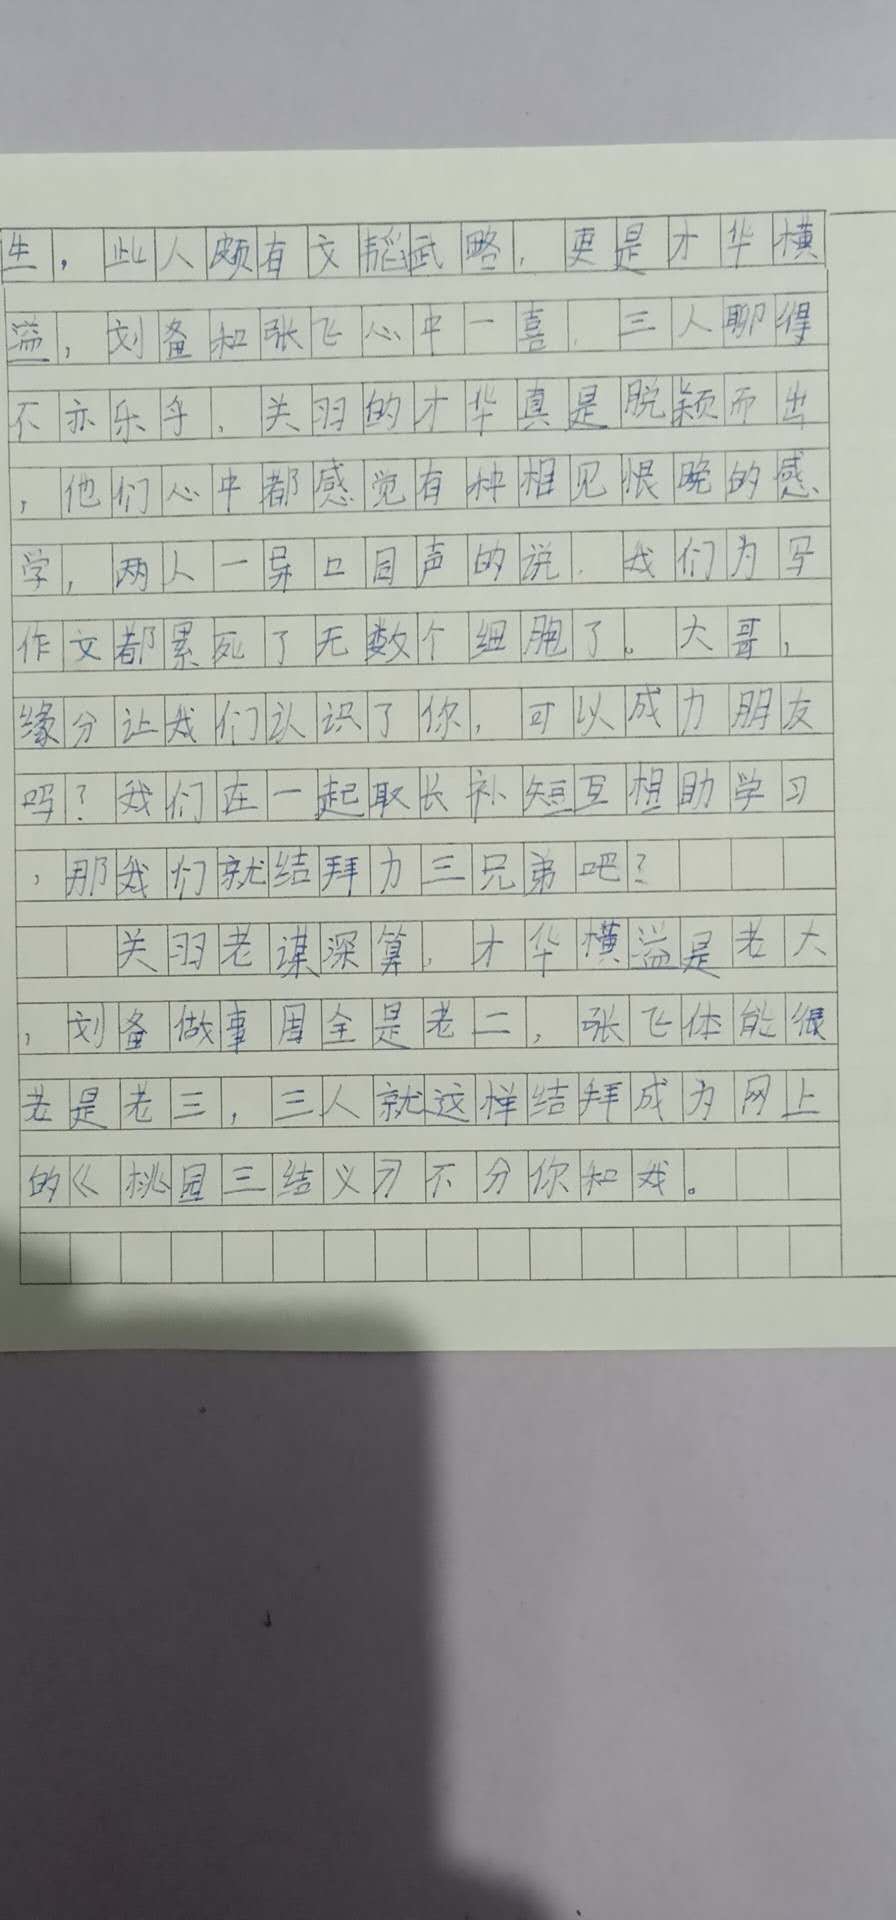 生，此人颇有文韬武略，更是才华横
溢，刘备和张飞心中一喜，三人聊得
不亦乐乎，关羽的才华真是脱颖而出
，他们心中都感觉有种相见恨晚的感
学，两人一异口同声的说，我们为写
作文都累死了无数个细胞了。大哥，
缘分让我们认识了你，可以成力朋友
吗？我们在一起取长补短互相助学习
，那我们就结拜力三兄弟吧？
关羽老谋深算，才华横溢是老大
，刘备做事周全是老二，张飞体能很
是老三，三人就这样结拜成为网上
的《桃园三结义》不分你和我。